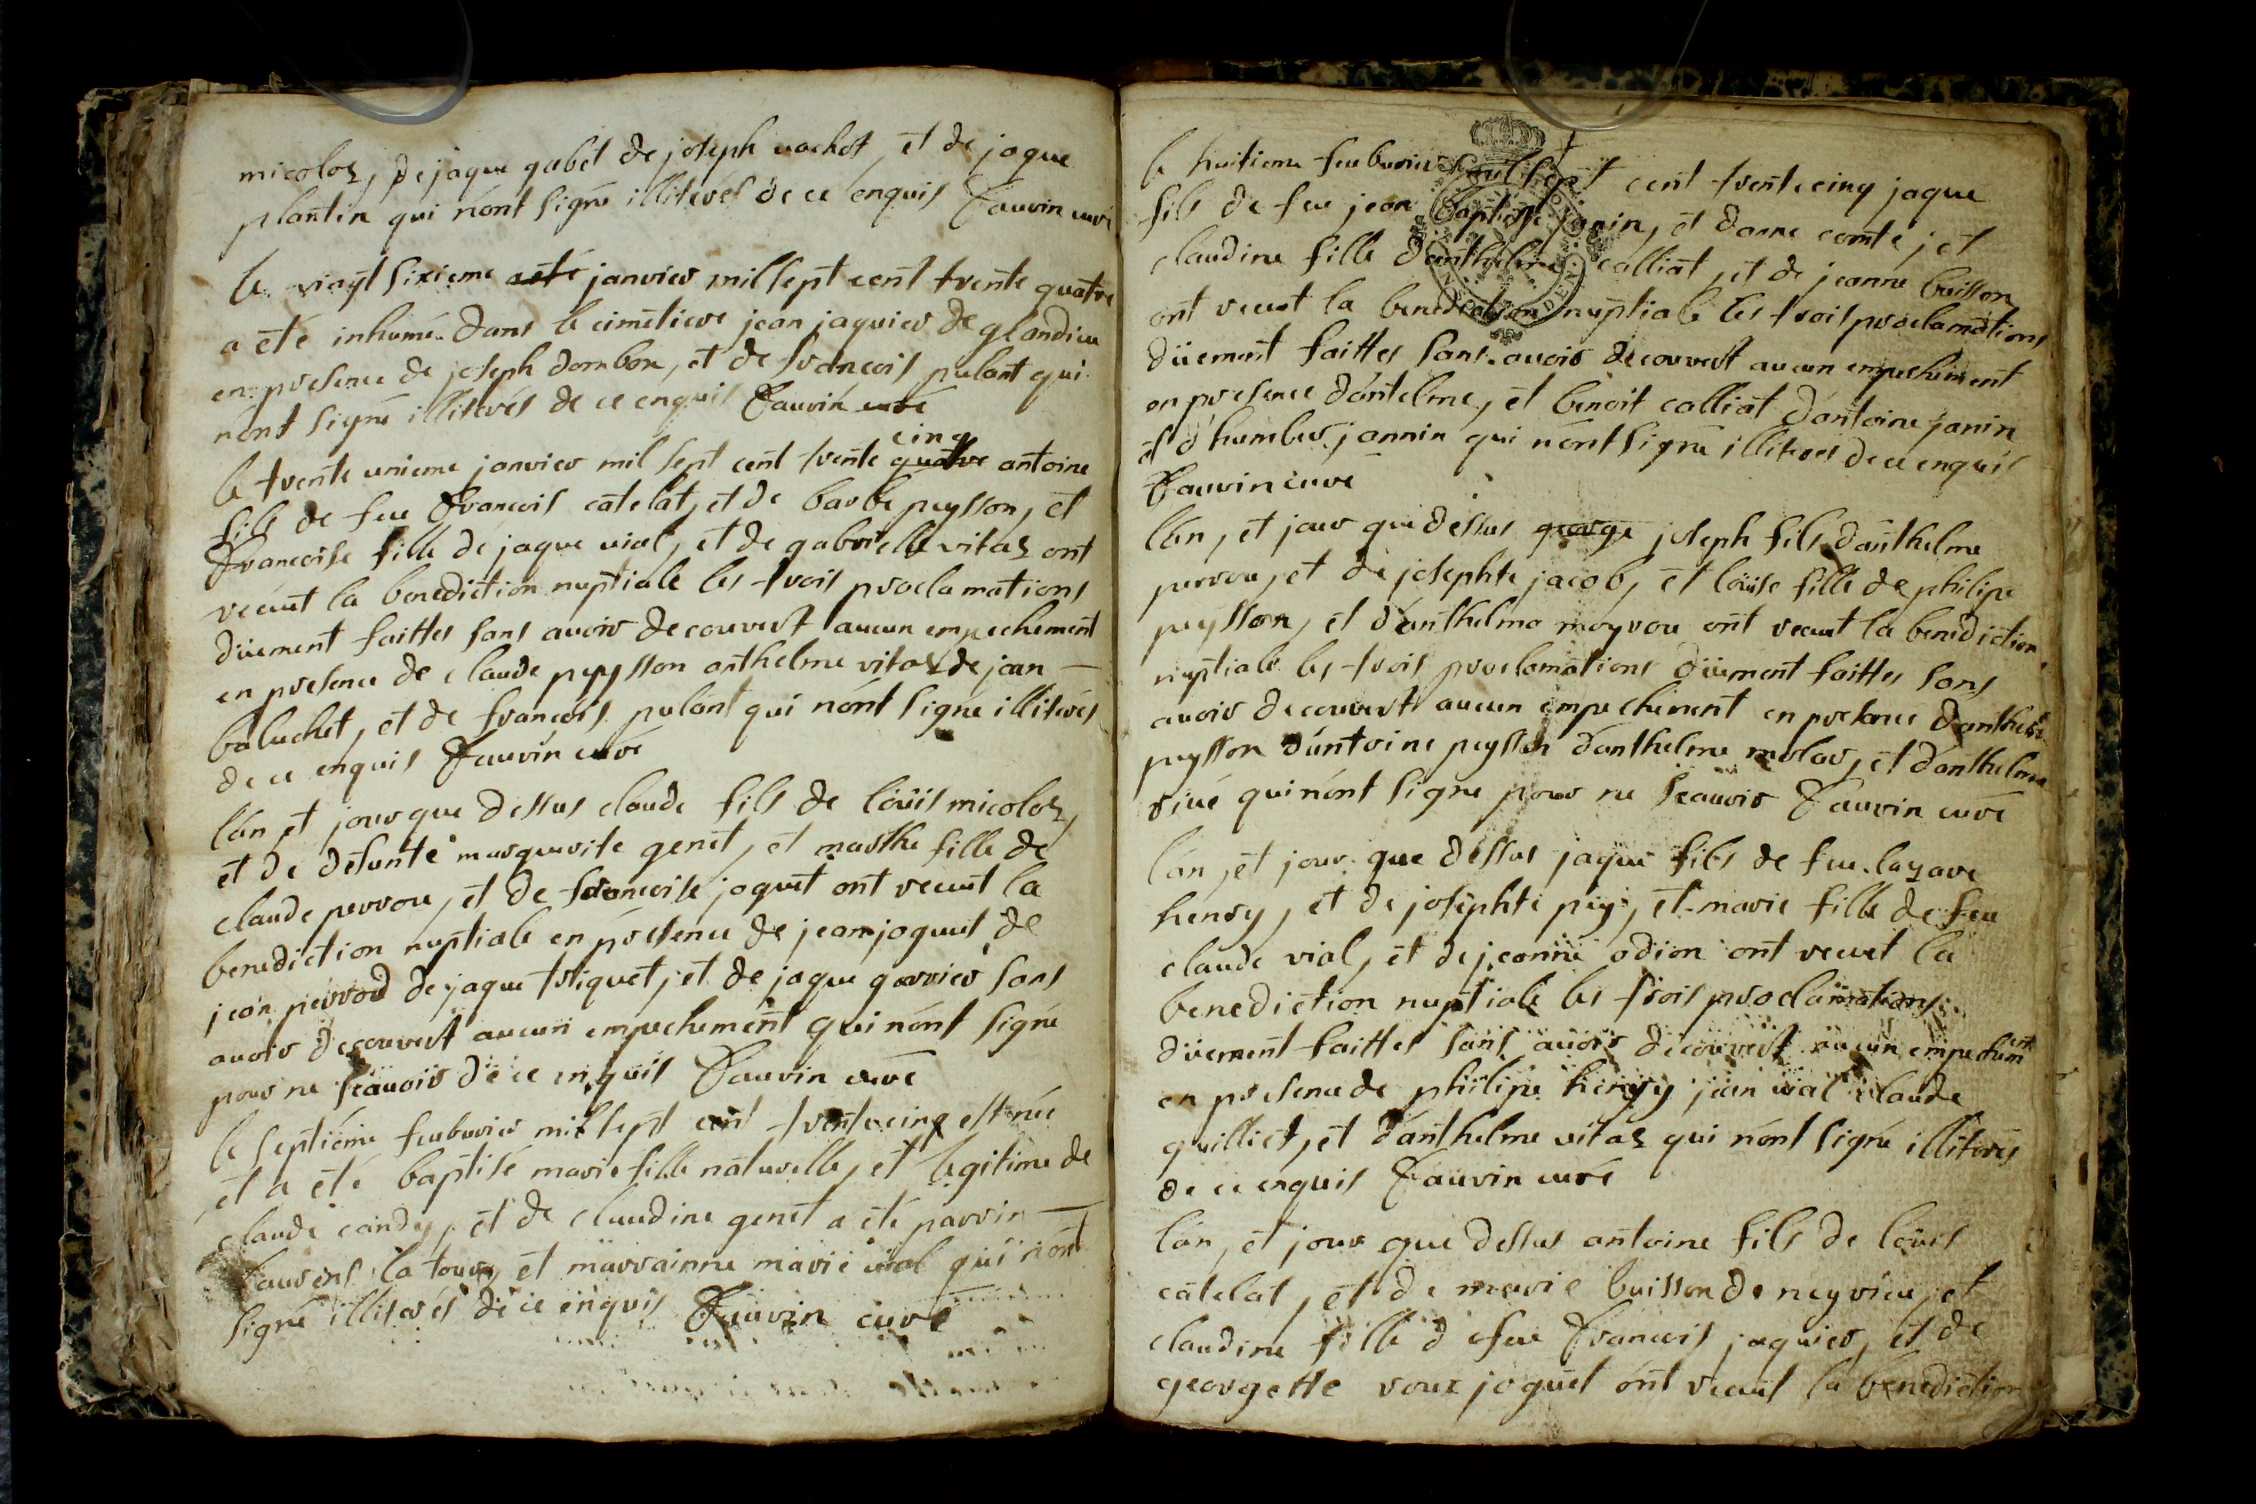 micoloz, de jaque gabet de joseph vachot, et de jaque
plantin qui nónt signé illiterés de ce enquis Fauvin curé
le vingt sixieme janvier mil sept cent trente quatre
a eté inhumé dans le cimetiere jean jaquier de glandieu
en presence de joseph dombon, et de francois pulant qui
nónt signé illiterés de ce enquis Fauvin curé
le trente unieme janvier mil sept cent trente cinq antoine
fils de feu Francois catelat, et de barbe peysson, et
Francoise fille de jaque vial, et de gabrielle vitoz ont
recut la benediction nuptiale les trois proclamations
düement faittes sans avoir decouvert aucun empechement
en presence de claude peysson anthelme vitoz de jean
baluchet, et de francois pulant qui nónt signé illiterés
de ce enquis Fauvin curé
lán et jour que dessus claude fils de loüis micoloz,
et de defunte marguerite genet, et marthe fille de
claude perrou, et de francoise joguet ont recut la
benediction nuptiale en presence de jean joguet de
jean perrou de jaque triquet, et de jaque garrier sans
avoir decouvert aucun empechement qui nónt signé
pour ne scavoir de ce enquis Fauvin curé
le septiéme feubvrier mil sept cent trente cinq est née
et a eté baptisé marie fille naturelle, et legitime de
claude candy, et de claudine genet a eté parrin
laurens la tour, et marrainne marie vial qui nónt
signé illiterés de ce enquis Fauvin curé
le huitieme feubvrier mil sept cent trente cinq jaque
fils de feu jean baptiste janin, et danne comte, et
claudine fille d'anthelme calliat, et de jeanne buisson
ont recut la benediction nuptiale les trois proclamations
düement faittes sans avoir decouvert aucun empechement
en presence dántelme, et benoit calliat d'antoine janin
et d'humber jannin qui nónt signé illiterés de ce enquis
Fauvin curé
lán, et jour que dessus george joseph fils dánthelme
perrou, et de josephte jacob, et loüise fille de philipe
peysson, et dánthelma moyrou ont recut la benediction
nuptiale les trois proclamations düement faittes sans
avoir decouvert aucun empechement en presence danthelme
peysson dántoine peysson dánthelme molar, et danthelme
rivé qui nónt signé pour ne scavoir Fauvin curé
lán, et jour que dessus jaque fils de feu lazare
henry, et de josephte pey, et marie fille de feu
claude vial, et de jeanne odion ont recut la
benediction nuptiale les trois proclamations
düement faittes sans avoir decouvert aucun empechement
en presence de philipe henry jean vial claude
quilliet, et dánthelme vitoz qui nónt signé illiterés
de ce enquis Fauvin curé
lán, et jour que dessus antoine fils de loüis
catelat, et de marie buisson de neyrieu, et
claudine fille de feu Francois jaquier, et de
georgette roux joguet ónt recut la benediction